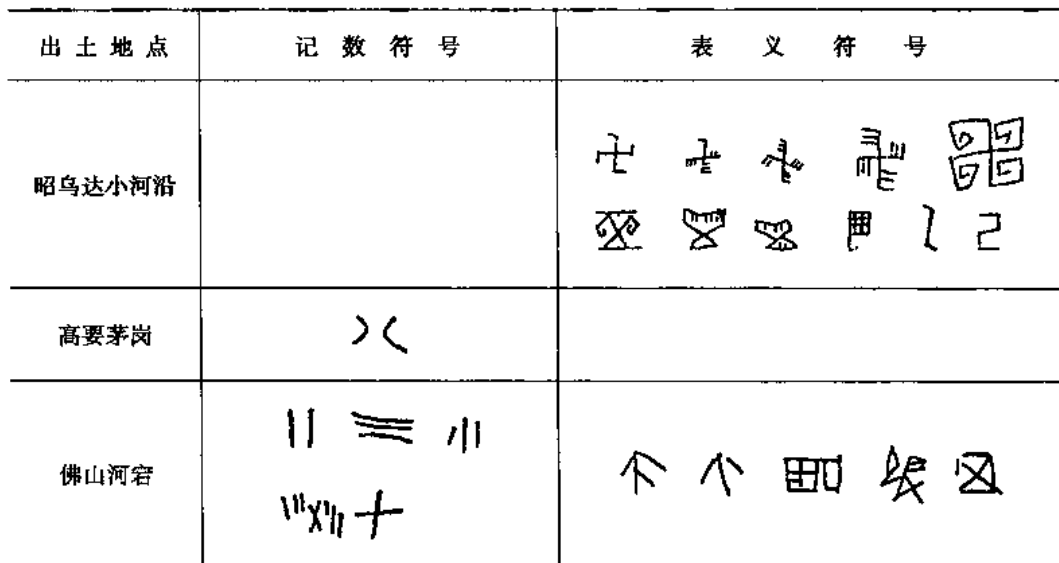 出土地点 记数符号 表义符号
昭乌达小河沿
高要茅岗
佛山河宕